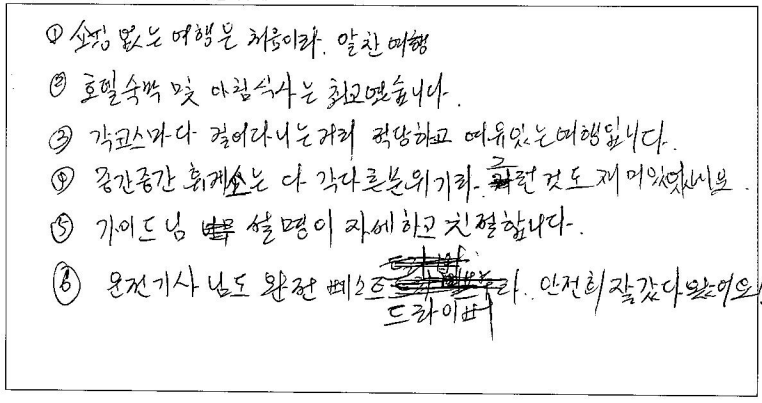 ① 쇼핑 없는 여행은 처음이라. 알찬 여행
② 호텔숙박 및 아침식사는 최고였습니다.
③ 각코스마다 걸어다니는거리 적당하고 여유있는여행입니다.
④ 중간중간 휴게소는 다 각다른분위기라. 그런 것도 재미있었네요.
⑤ 가이드님 설명이 자세하고 친절합니다.
⑥ 운전기사님도 완전 베스트 드라이버라.. 안전히 잘갔다왔어요!